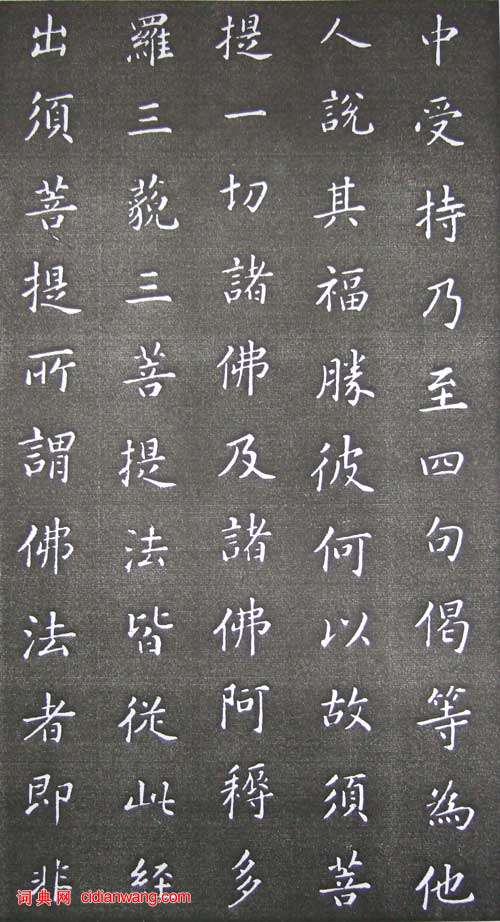 中受持乃至四句偈等為他
人說其福勝彼何以故須菩
提一切諸佛及諸佛阿耨多
羅三藐三菩提法皆從此經
出須菩提所謂佛法者即非
词典网 cidianwang.com